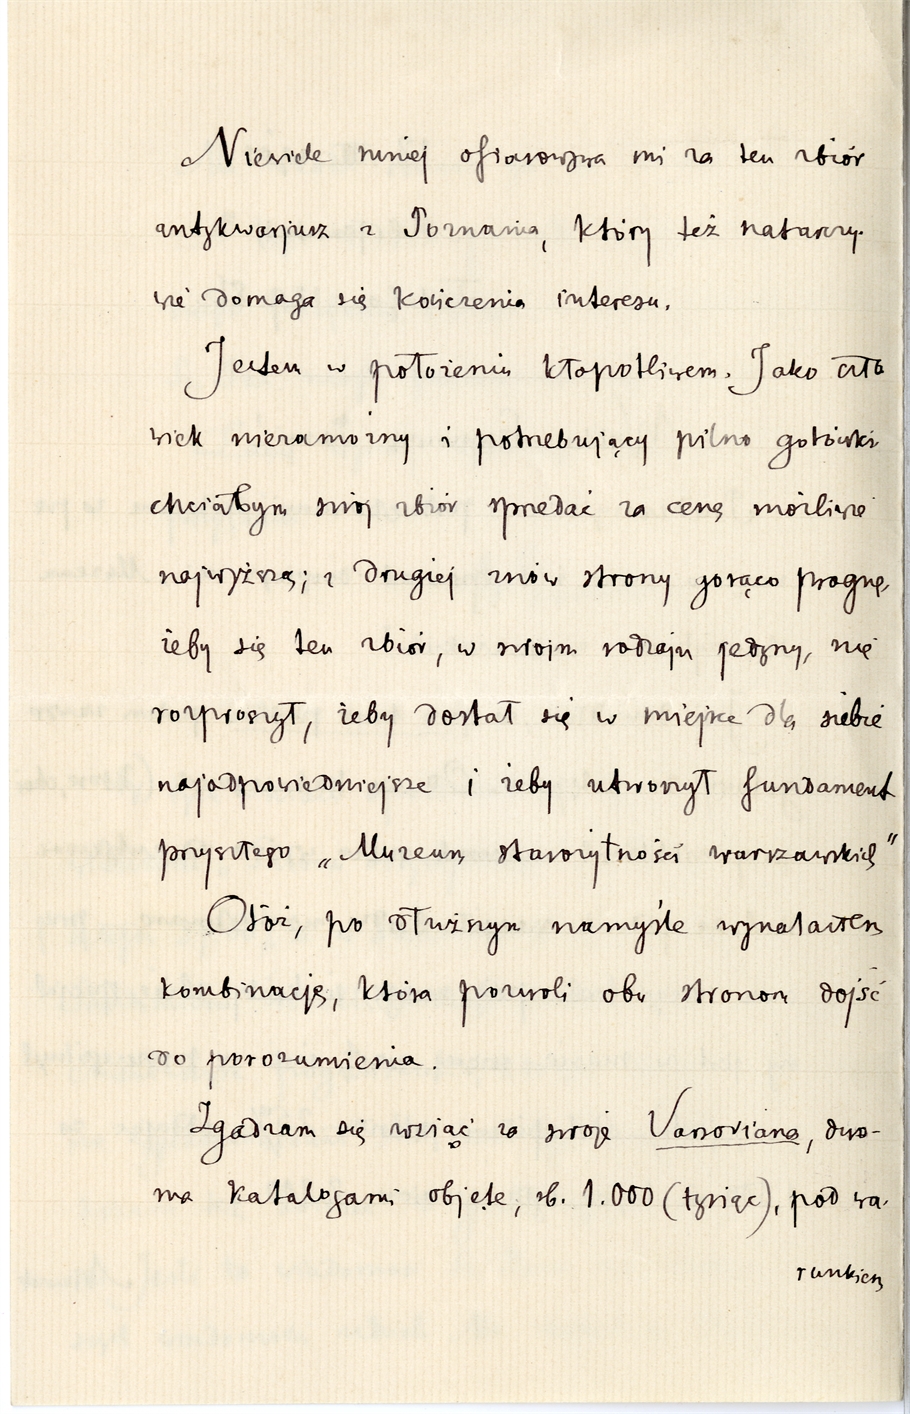 Niewiele mniej ofiarowywa mi za ten zbiór
antykwarjusz z Poznania, który też natarczy-
wie domaga się kończenia interesu.
Jestem w położeniu kłopotliwem. Jako czło
wiek niezamożny i potrzebujący pilno gotówki
chciałbym swój zbiór sprzedać za cenę możliwie
najwyższą; z drugiej znów strony gorąco pragnę,
żeby się ten zbiór, w swojm rodzaju jedyny, nie
rozproszył, żeby dostał się w miejsce dla siebie
najodpowiedniejsze i żeby utworzył fundament
przyszłego „Muzeum starożytności warszawskich"
Otóż, po dłuższym namyśle wynalazłem
kombinację, która pozwoli obu stronom dojść
do porozumienia.
Zgadzam się wziąć za swoje Varsoviana, dwo-
ma katalogami objęte, rb. 1.000 (tysiąc), pod wa-
runkiem